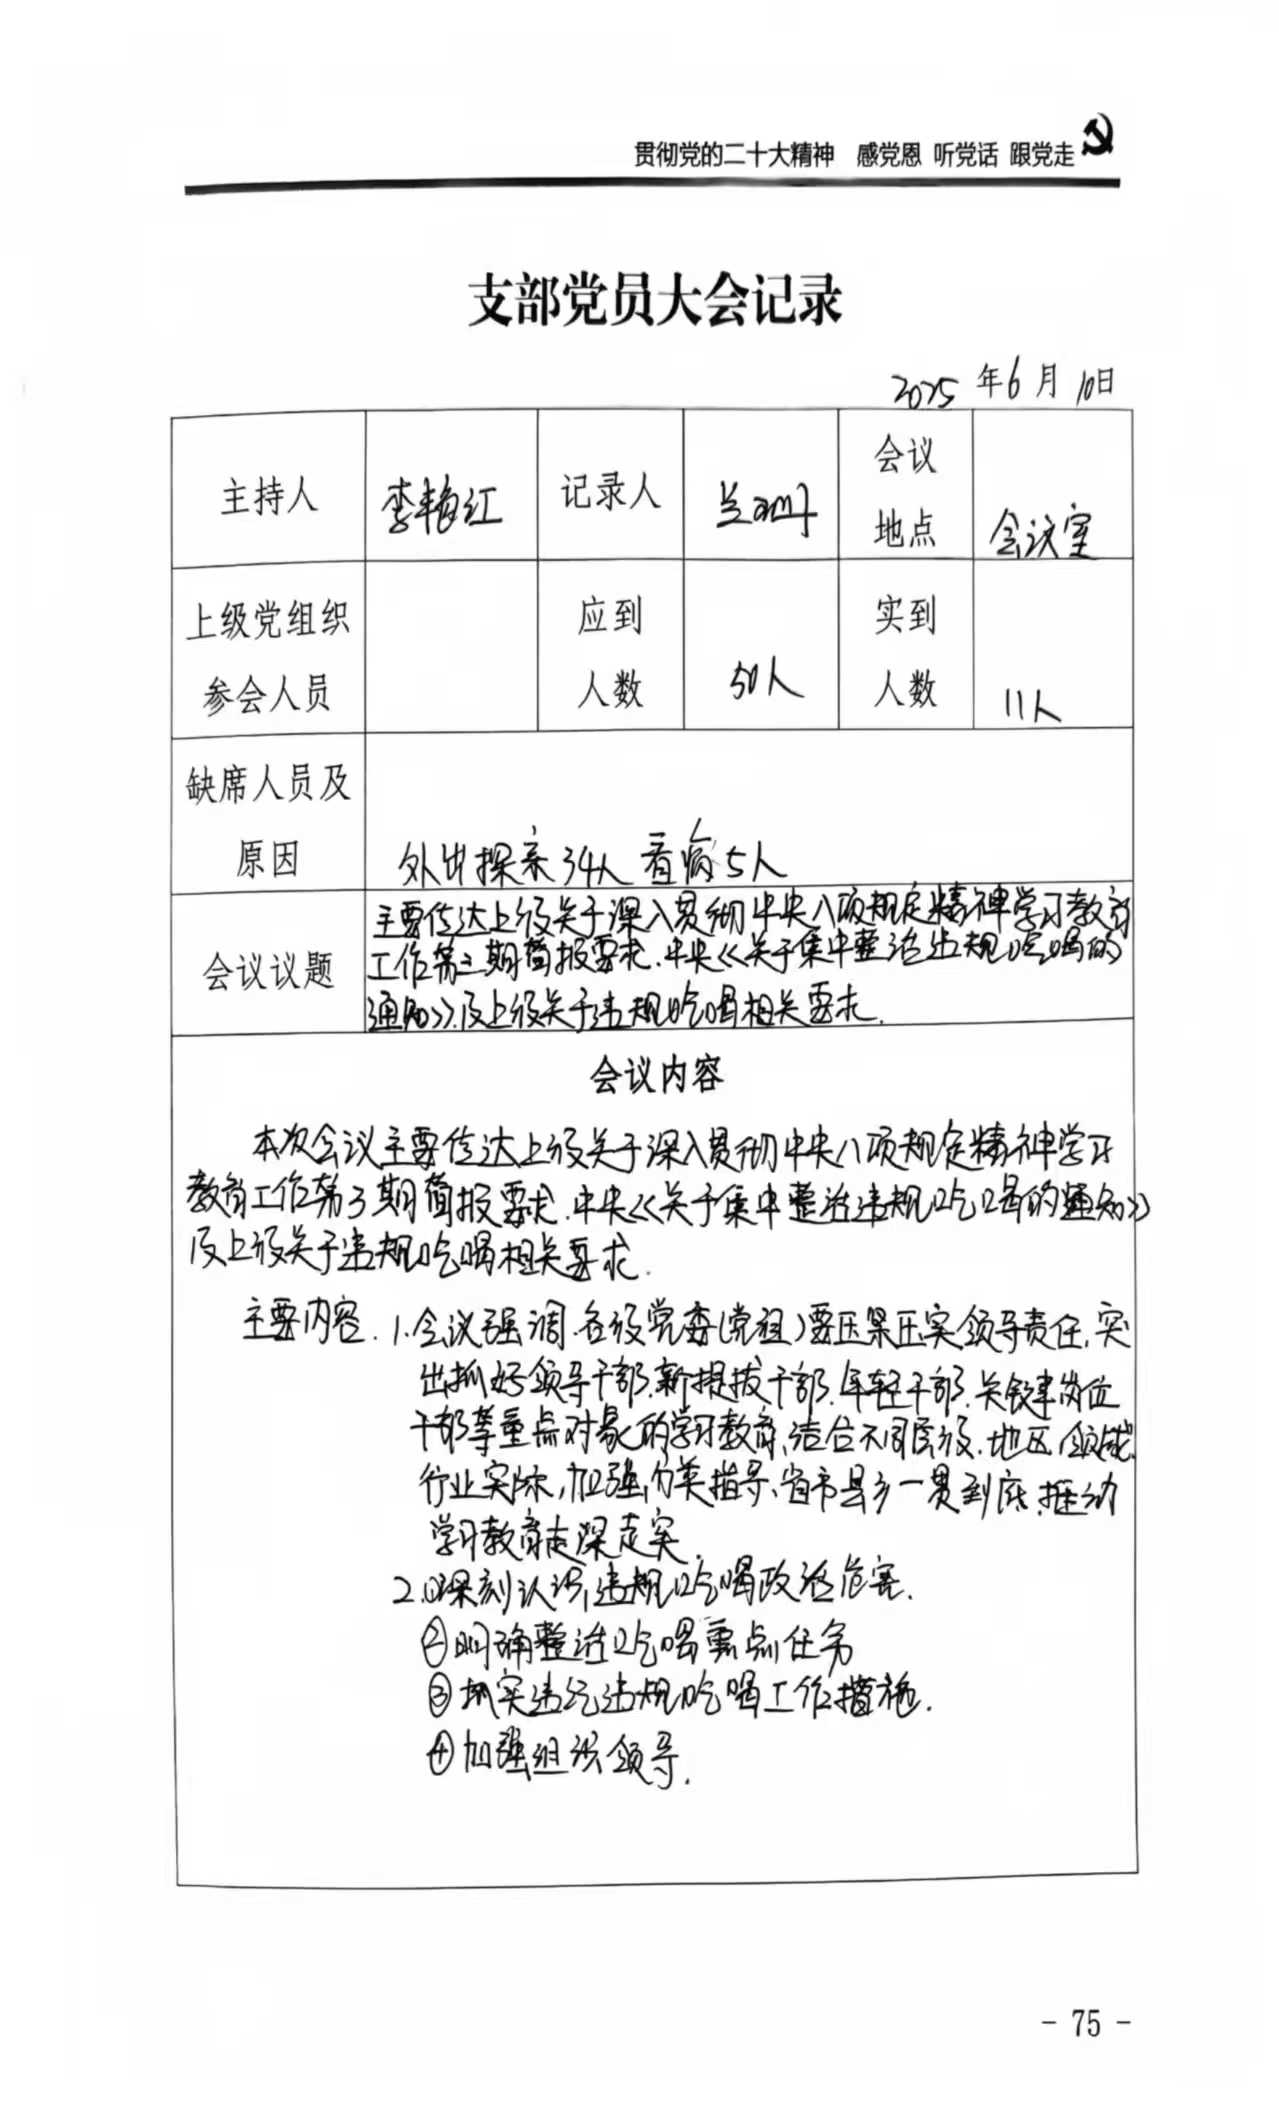 贯彻党的二十大精神 感党恩 听党话 跟党走
支部党员大会记录
2025年6月10日
主持人 李梅红 记录人 会议地点 会议室
上级党组织参会人员 应到人数 50人 实到人数 11人
缺席人员及原因 外出探亲34人 看病5人
会议议题
主要传达上级关于深入贯彻中央八项规定精神学习教育
工作第三期简报要求.中央《关于集中整治违规吃喝的
通知》.及上级关于违规吃喝相关要求.
会议内容
本次会议主要传达上级关于深入贯彻中央八项规定精神学习
教育工作第3期简报要求.中央《关于集中整治违规吃喝的通知》
及上级关于违规吃喝相关要求.
主要内容.1.会议强调.各级党委(党组)要压紧压实领导责任,突
出抓好领导干部.新提拔干部.年轻干部.关键岗位
干部等重点对象的学习教育,结合不同层级.地区.领域.
行业实际,加强分类指导、省市县乡一贯到底.推动
学习教育走深走实.
2.①深刻认识违规吃喝政治危害.
②明确整治吃喝重点任务
③抓实违纪违规吃喝工作措施.
④加强组织领导.
- 75 -